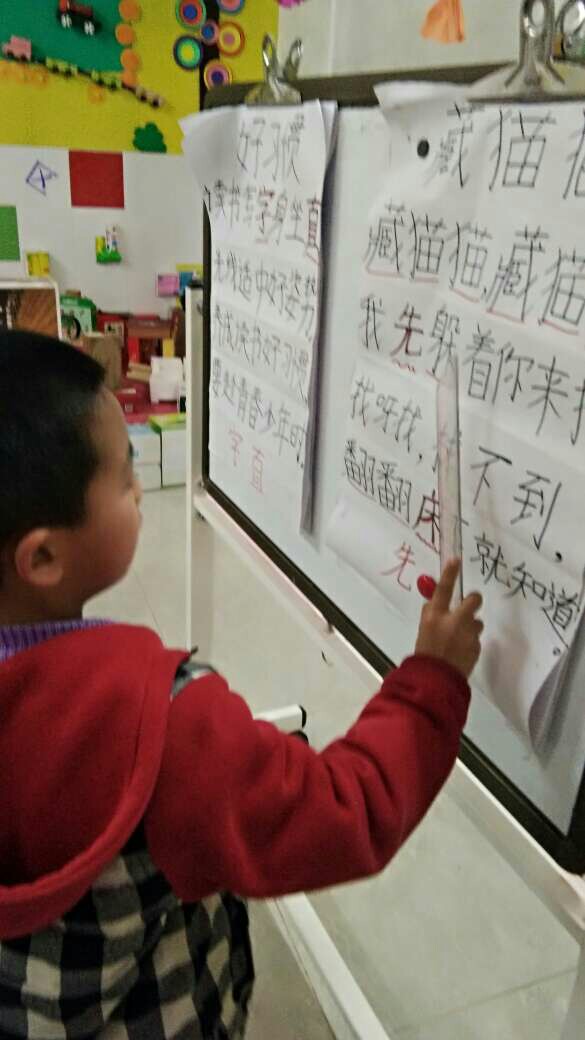 好习惯
读书写字身坐直
先找
养成读书好习惯
要趁青春少年时
字 直
藏猫猫
藏猫猫,藏猫
我先躲着你来找
找呀找,找不到.
翻翻床 就知道。
先